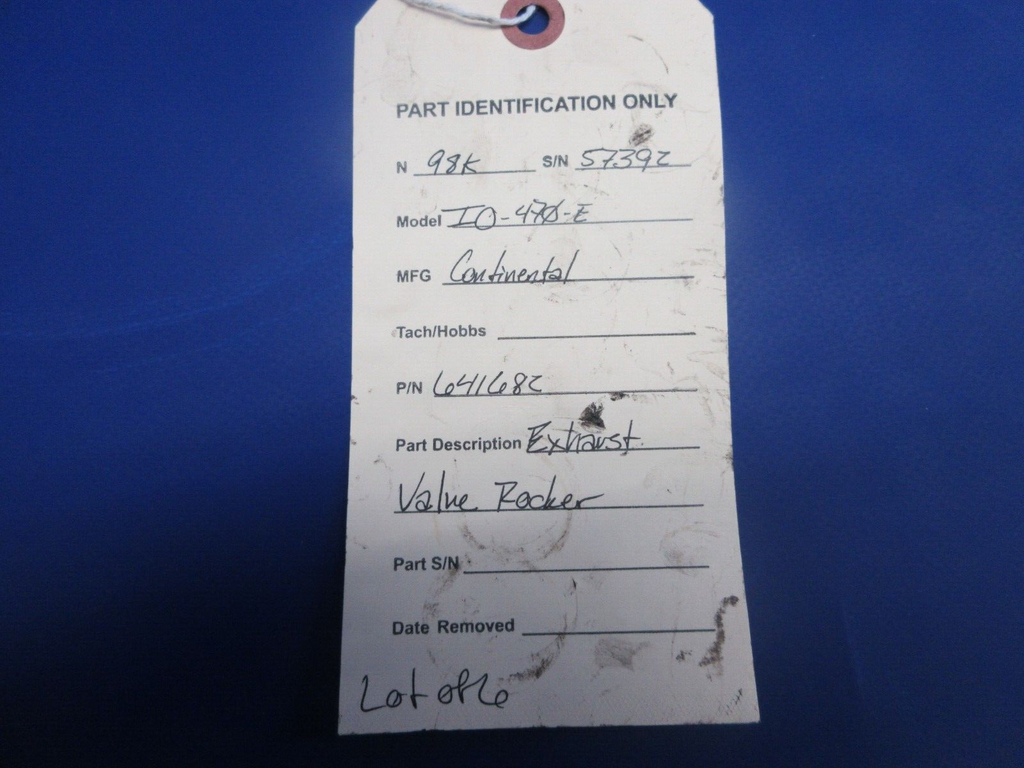 PART IDENTIFICATION ONLY
N 98K S/N 57392
Model IO-470-E
MFG Continental
Tach/Hobbs
P/N 641682
Part Description Exhaust
Valve Rocker
Part S/N
Date Removed
Lot of 6